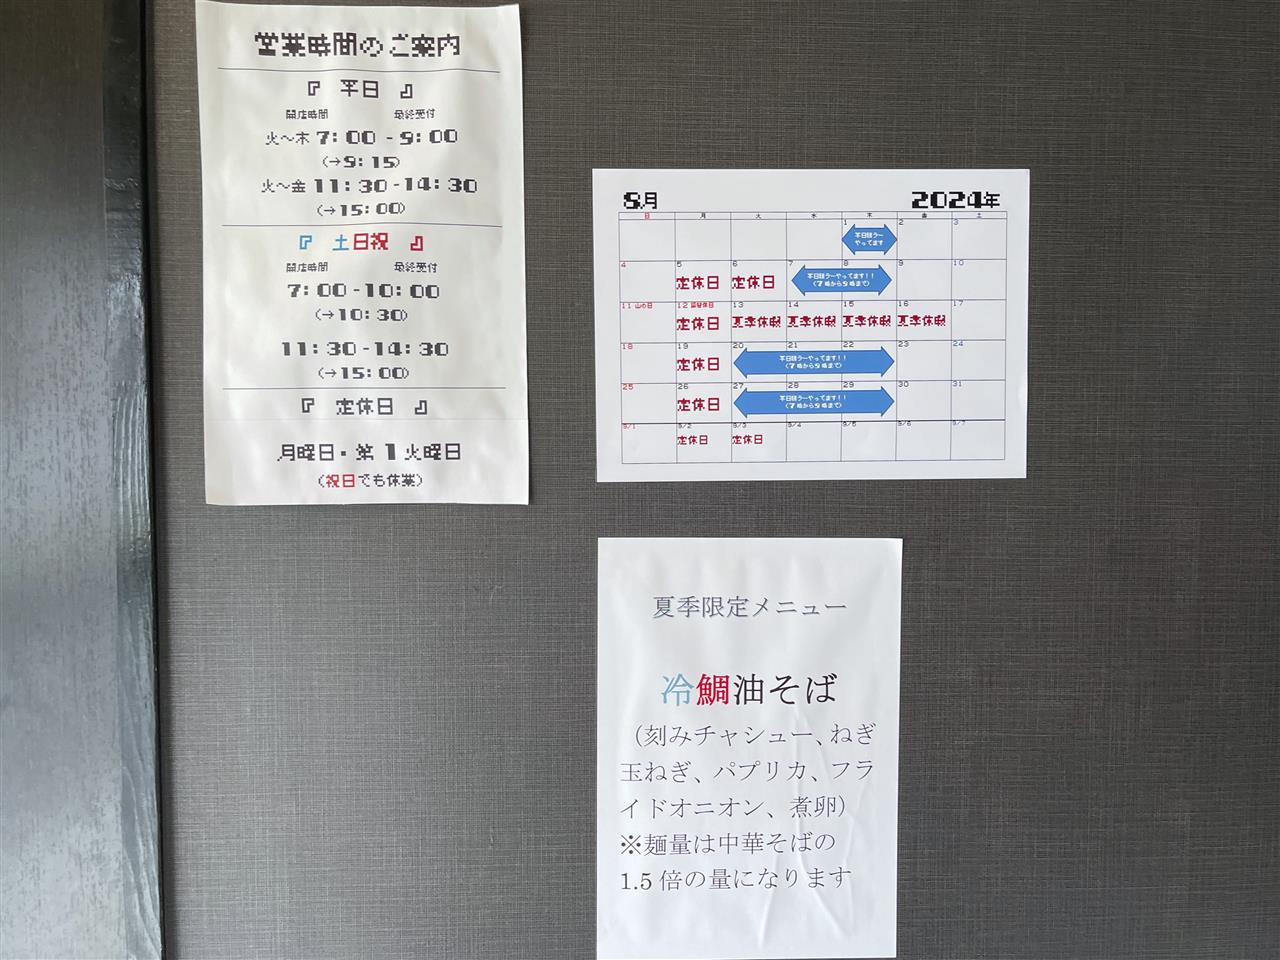 営業時間のご案内
『 平日 』
開店時間 最終受付
火～木 7:00 - 9:00
(→9:15)
火～金 11:30 - 14:30
(→15:00)
『 土日祝 』
開店時間 最終受付
7:00 - 10:00
(→10:30)
11:30 - 14:30
(→15:00)
『 定休日 』
月曜日・第1火曜日
(祝日でも休業)
8月 2024年
日 月 火 水 木 金 土
1 2 3
平日朝ラー
やってます
4 5 6 7 8 9 10
定休日 定休日 平日朝ラーやってます!!
(7時から9時まで)
11 山の日 12 振替休日 13 14 15 16 17
定休日 夏季休暇 夏季休暇 夏季休暇 夏季休暇
18 19 20 21 22 23 24
定休日 平日朝ラーやってます!!
(7時から9時まで)
25 26 27 28 29 30 31
定休日 平日朝ラーやってます!!
(7時から9時まで)
9/1 9/2 9/3 9/4 9/5 9/6 9/7
定休日 定休日
夏季限定メニュー
冷鯛油そば
（刻みチャシュー、ねぎ
玉ねぎ、パプリカ、フラ
イドオニオン、煮卵）
※麺量は中華そばの
1.5 倍の量になります